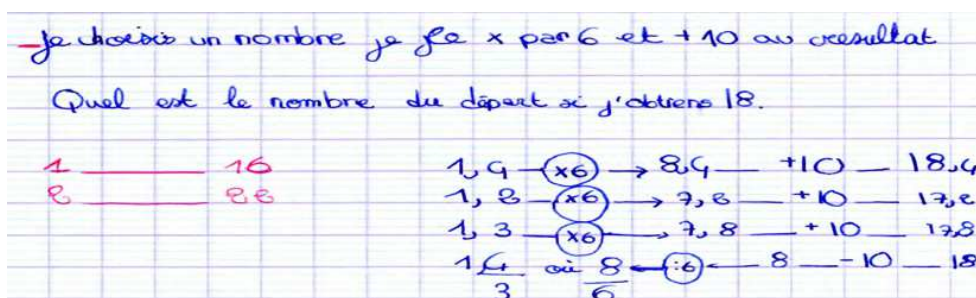 Je choisis un nombre je le x par 6 et +10 au resultat
Quel est le nombre du départ si j'obtiens 18.
1 ——— 16
2 ——— 22
1,4 —(x6)→ 8,4 — +10 — 18,4
1,2 —(x6)→ 7,2 — +10 — 17,2
1,3 —(x6)→ 7,8 — +10 — 17,8
4/3 où 8/6 ←(:6)← 8 — -10 — 18